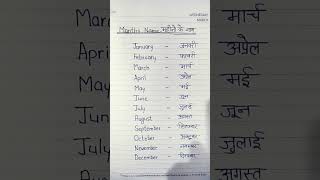 Months Name महीनों के नाम
January - जनवरी
February - फरवरी
March - मार्च
April - अप्रैल
May - मई
June - जून
July - जुलाई
August - अगस्त
September - सितम्बर
October - अक्टूबर
November - नवम्बर
December - दिसम्बर